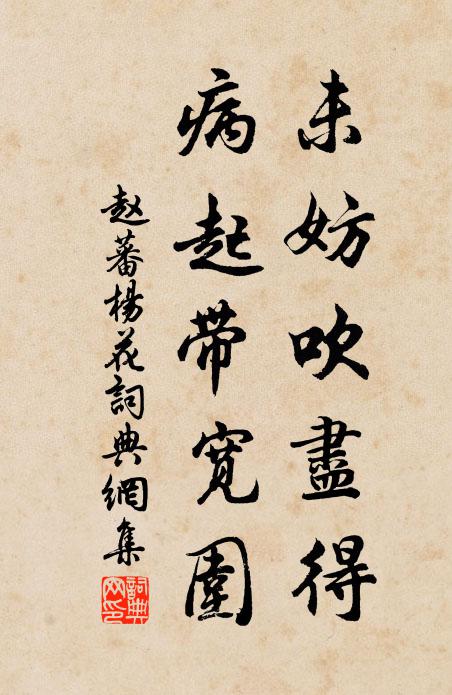 未妨吹盡得
病起帶寬圍
赵蕃楊花詞典網集
詞典网印